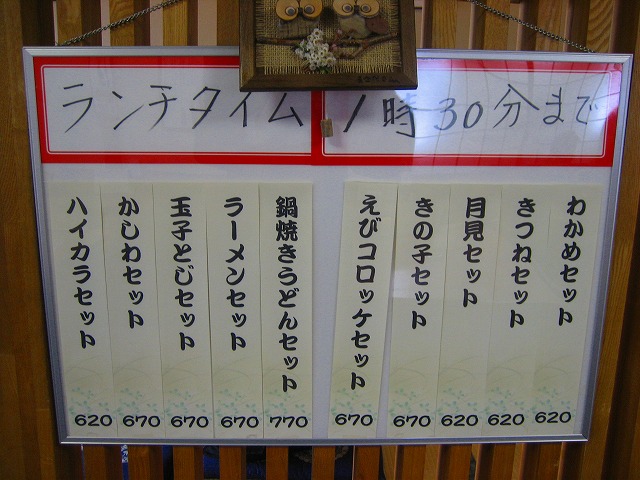 ランチタイム 1時30分まで
わかめセット 620
きつねセット 620
月見セット 620
きの子セット 670
えびコロッケセット 670
鍋焼きうどんセット 770
ラーメンセット 670
玉子とじセット 670
かしわセット 670
ハイカラセット 620